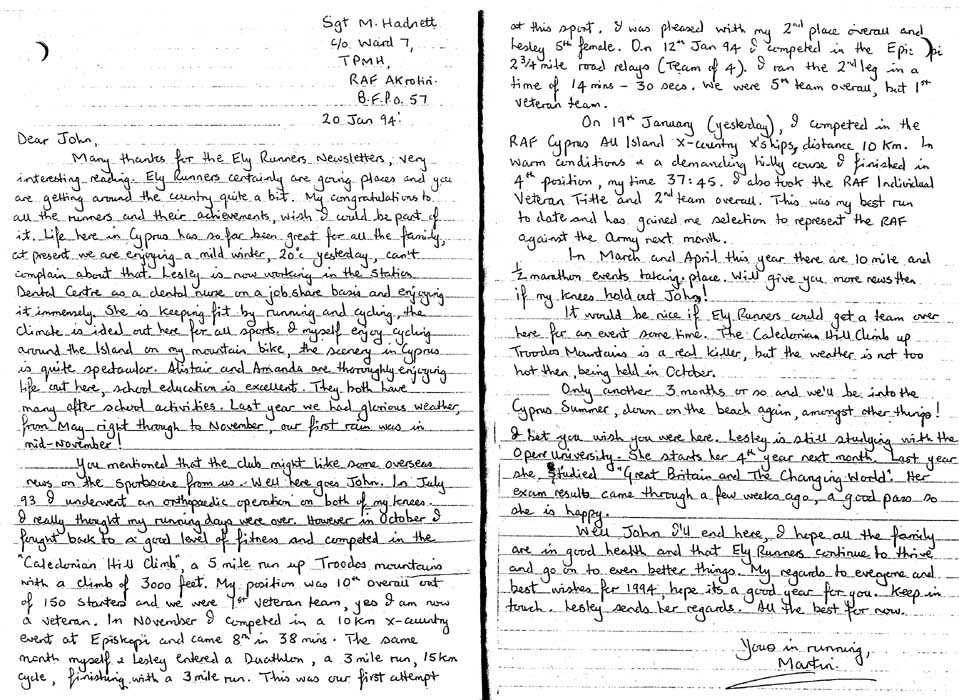 Sgt M. Hadnett
c/o Ward 7,
TPMH,
RAF Akrotiri.
B.F.P.O. 57
20 Jan 94.
Dear John,
Many thanks for the Ely Runners Newsletters, very
interesting reading. Ely Runners certainly are going places and you
are getting around the country quite a bit. My congratulations to
all the runners and their achievements, wish I could be part of
it. Life here in Cyprus has so far been great for all the family,
at present we are enjoying a mild winter, 20°c yesterday, can't
complain about that. Lesley is now working in the Station
Dental Centre as a dental nurse on a job share basis and enjoying
it immensely. She is keeping fit by running and cycling, the
climate is ideal out here for all sports. I myself enjoy cycling
around the Island on my mountain bike, the scenery in Cyprus
is quite spectaular. Alistair and Amanda are thoroughly enjoying
life out here, school education is excellent. They both have
many after school activities. Last year we had glorious weather,
from May right through to November, our first rain was in
mid-November!
You mentioned that the club might like some overseas
news on the sportscene from us. Well here goes John. In July
93 I underwent an orthopaedic operation on both of my knees.
I really thought my running days were over. However in October I
fought back to a good level of fitness and competed in the
"Caledonian Hill Climb", a 5 mile run up Troodos mountains
with a climb of 3000 feet. My position was 10th overall out
of 150 starters and we were 1st veteran team, yes I am now
a veteran. In November I competed in a 10km x-country
event at Episkopi and came 8th in 38 mins. The same
month myself & Lesley entered a Duathlon, a 3 mile run, 15km
cycle, finishing with a 3 mile run. This was our first attempt
at this sport. I was pleased with my 2nd place overall and
Lesley 5th female. On 12th Jan 94 I competed in the Epi pi
2 3/4 mile road relays (Team of 4). I ran the 2nd leg in a
time of 14 mins - 30 secs. We were 5th team overall, but 1st
veteran team.
On 19th January (yesterday), I competed in the
RAF Cyprus All Island x-country x'ships, distance 10 Km. In
warm conditions & a demanding hilly course I finished in
4th position, my time 37:45. I also took the RAF Individual
Veteran Title and 2nd team overall. This was my best run
to date and has gained me selection to represent the RAF
against the Army next month.
In March and April this year there are 10 mile and
1/2 marathon events taking place. Will give you more news then
if my knees hold out John!
It would be nice if Ely Runners could get a team over
here for an event some time. The Caledonian Hill Climb up
Troodos Mountains is a real killer, but the weather is not too
hot then, being held in October.
Only another 3 months or so and we'll be into the
Cyprus Summer, down on the beach again, amongst other things!
I bet you wish you were here. Lesley is still studying with the
Open University. She starts her 4th year next month. Last year
she studied "Great Britain and The Changing World". Her
exam results came through a few weeks ago, a good pass so
she is happy.
Well John I'll end here, I hope all the family
are in good health and that Ely Runners continue to thrive
and go on to even better things. My regards to everyone and
best wishes for 1994, hope its a good year for you. Keep in
touch. Lesley sends her regards. All the best for now.
Yours in running,
Martin.